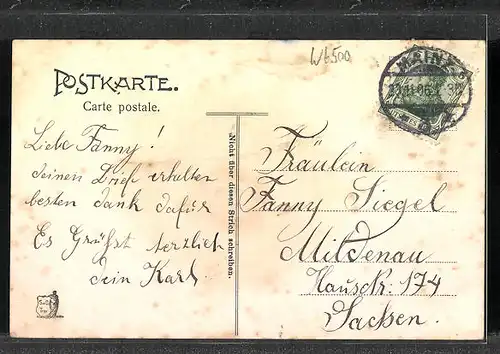 W6500
POSTKARTE.
Carte postale.
MAINZ
Liebe Fanny!
deinen Brief erhalten
besten dank dafür
Es Grüßst herzlich
dein Karl.
Nicht über diesen Strich schreiben.
Fräulein
Fanny Siegel
Mildenau
Hausnr. 174
Sachsen.